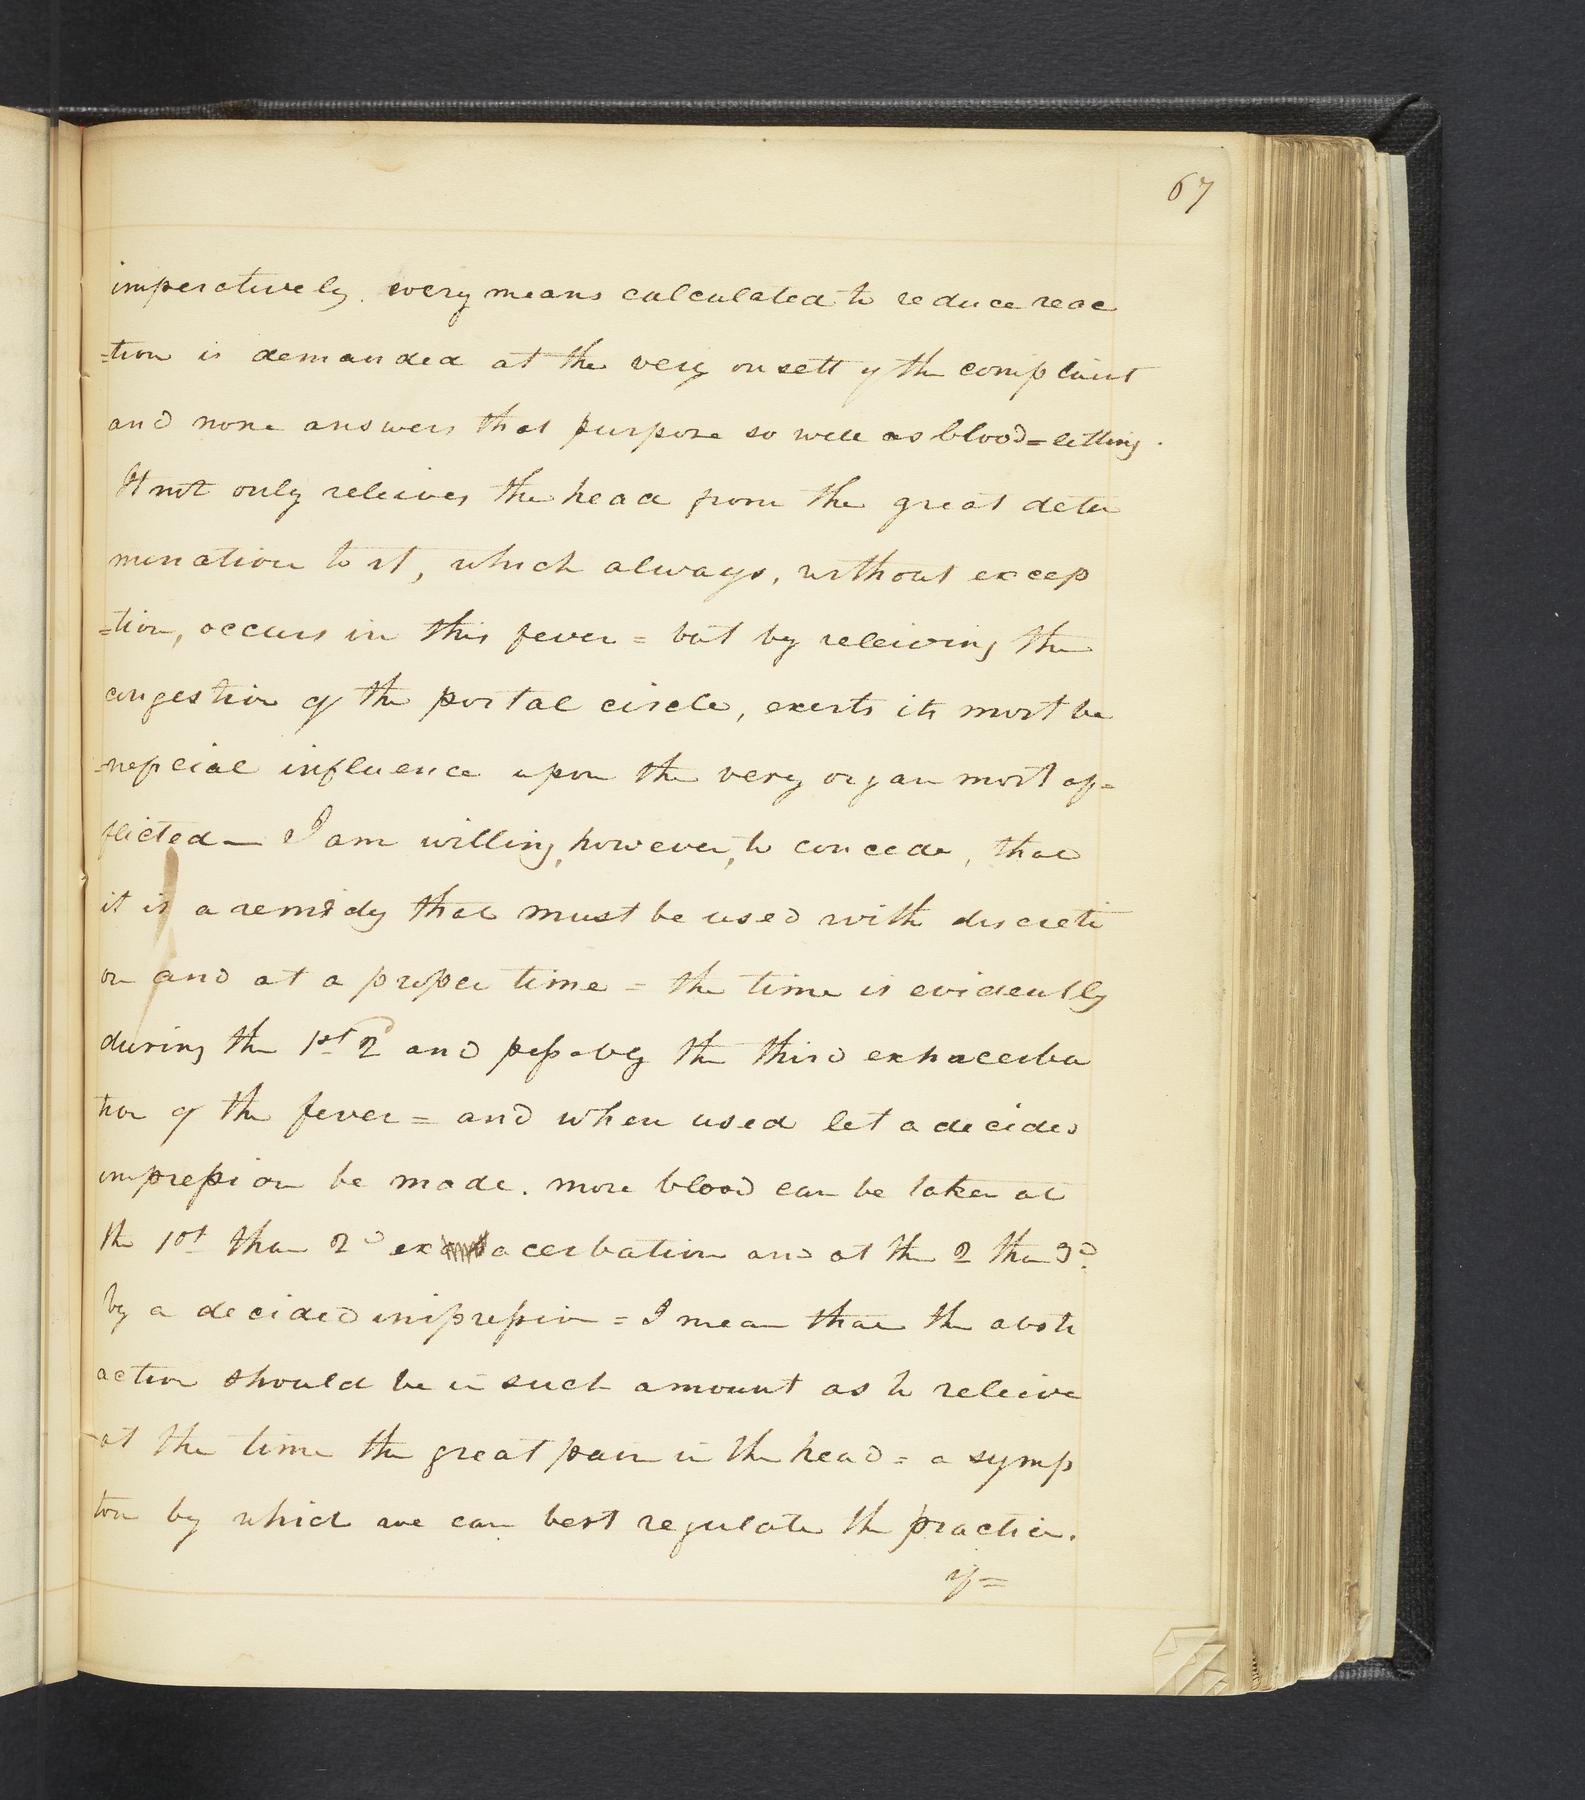 67
imperatively. every means calculated to reduce reac
=tion is demanded at the very onsett of the complaint
and none answers that purpose so well as blood=letting.
It not only releives the head from the great deter
mination to it, which always, without excep
=tion, occurs in this fever = but by releiving the
congestion of the portal circle, exerts its most be
=neficial influence upon the very organ most af=
flicted — I am willing, however, to concede, that
it is a remedy that must be used with discreti
on and at a proper time = the time is evidently
during the 1st 2d and possibly the third exhacerba
tion of the fever = and when used let a decided
impression be made. more blood can be taken at
the 1st than 2d exacerbation and at the 2 than 3d.
by a decided impression = I mean that the abstr
action should be in such amount as to releive
at the time the great pain in the head = a symp
tom by which we can best regulate the practice.
if =